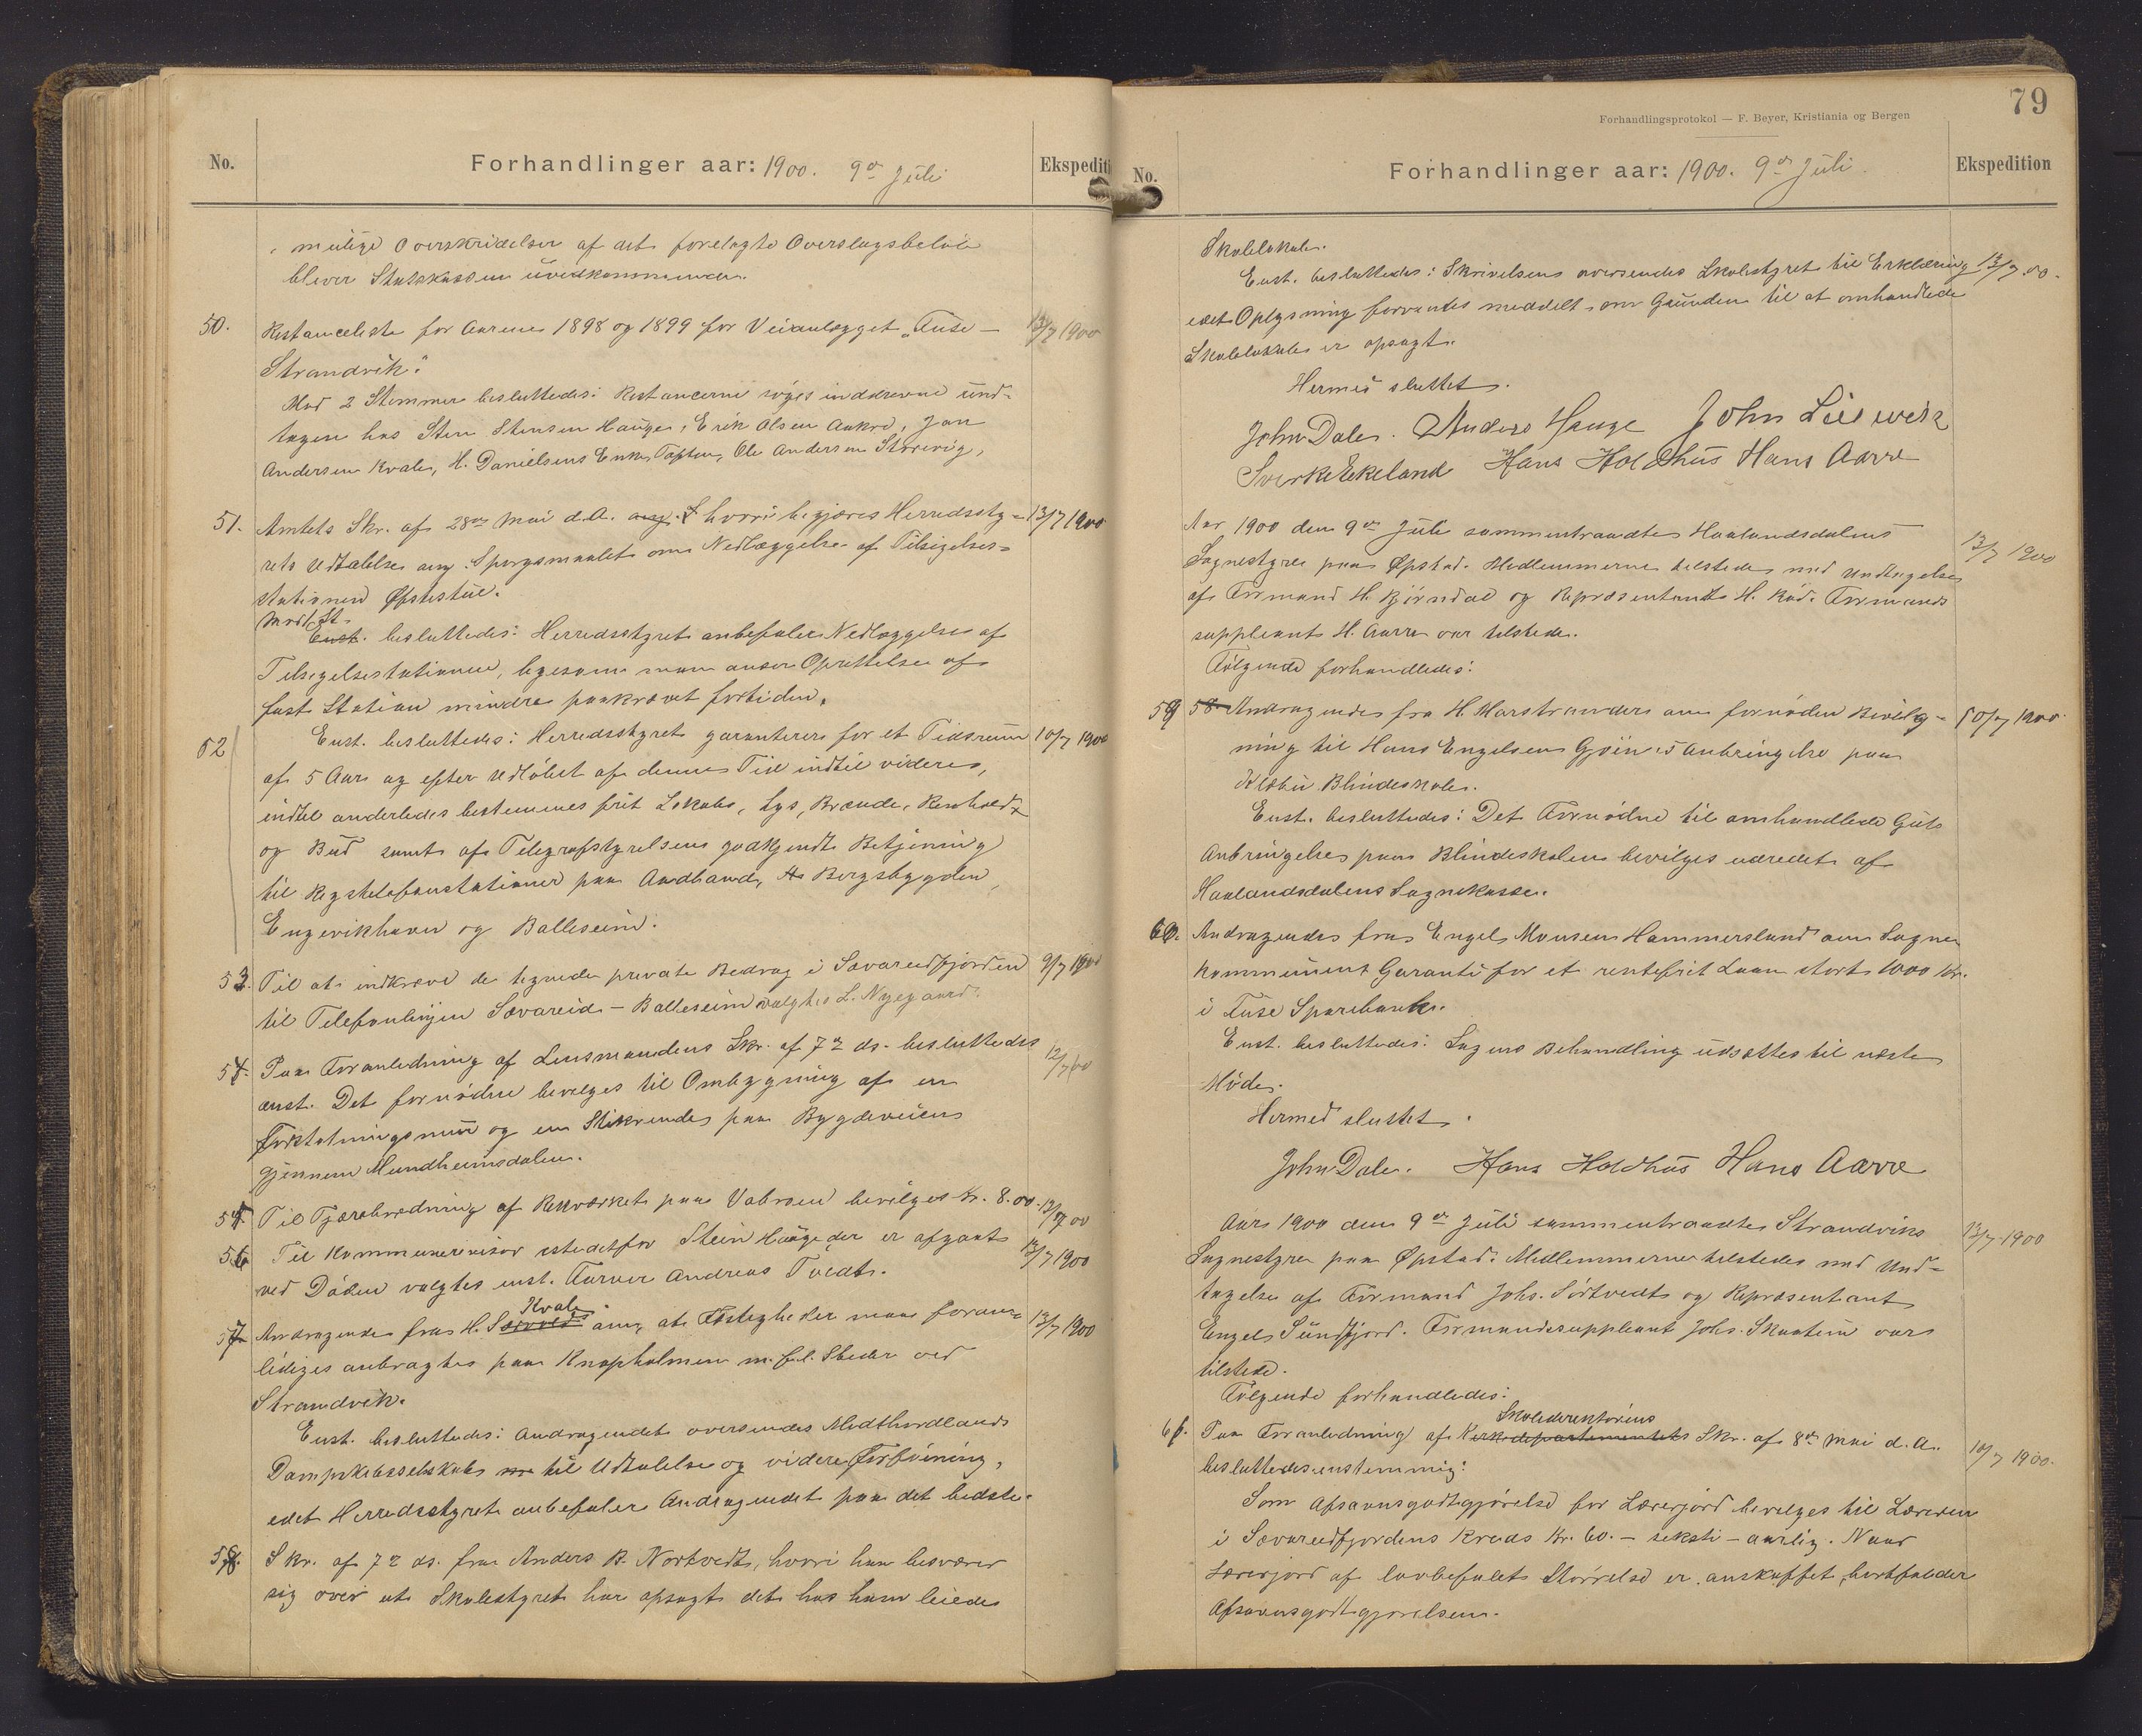 No.
Forhandlinger aar: 1900. 9de Juli
Ekspediti
mulige Overskridelser af det forelagte Overslagsbeløb
bliver Statskassen uvedkommende.
50. Restanceliste for Aarene 1898 og 1899 for Veianlægget „Fuse – 13/7 1900
Strandvik."
Mod 2 Stemmer besluttedes: Restancerne søges inddrevne und-
tagen hos Sten Stensen Hauge, Erik Olsen Aakre, Jon
Andersen Kvale, H. Danielsens Enke, Ole Andersen Storevig,
51. Amtets Skr. af 28de Mai d.A. ang. hvori begjæres Herredssty- 13/7 1900
rets Udtalelse ang. Spørgsmaalet om Nedlæggelse af Tilsigelses-
stationen Øfstestue.
Mod 1 St.
Enst. besluttedes: Herredsstyret anbefaler Nedlæggelse af
Tilsigelsesstationen, ligesom man anser Oprettelse af
fast Station mindre paakrævet fortiden.
52 Enst. besluttedes: Herredsstyret garanterer for et Tidsrum 10/7 1900
af 5 Aar og efter Udløbet af denne Tid indtil videre,
indtil anderledes bestemmes frit Lokale, Lys, Brænde, Renhold
og Bud samt af Telegrafstyrelsen godkjendt Betjening
til Rigstelefonstationer paa Aadland, Bergsbygden,
Engevikhavn og Balleseim.
53. Til at indkræve de tegnede private Bidrag i Sævareidfjorden 9/7 1900
til Telefonlinjen Sævareid – Balleseim valgtes L. Nygaard.
54. Paa Foranledning af Lensmandens Skr. af 7de ds. besluttedes 12/7 00
enst. Det fornødne bevilges til Ombygning af en
Forstøtningsmur og en Stikrende paa Bygdeveien
gjennem Mundheimsdalen.
55. Til Tjærebredning af Rekværket paa Vabroen bevilges Kr. 8.00. 13/7 00
56 Til Kommunerevisor istedetfor Stein Hauge der er afgaat 13/7 1900
ved Døden valgtes enst. Farver Andreas Tvedt.
Kvale
57 Andragende fra H. Sørvold om, at Fæsteigheder maa foran- 13/7 1900
lediges anbragte paa Knapholmen m. fl. Steder ved
Strandvik.
Enst. besluttedes: Andragendet oversendes Midthordlands
Dampskibsselskab til Udtalelse og videre Forføining,
idet Herredsstyret anbefaler Andragendet paa det bedste.
58. Skr. af 7de ds. fra Anders B. Nordtvedt, hvori han besværer
sig over at Skolestyret har opsagt det hos ham leiede
79
Forhandlingsprotokol — F. Beyer, Kristiania og Bergen
No.
Forhandlinger aar: 1900. 9de Juli.
Ekspedition
Skolelokale.
Enst. besluttedes: Skrivelsen oversendes Skolestyret til Erklæring 13/7 00.
idet Oplysning forventes meddelt om Grunden til at omhandlede
Skolelokale er opsagt.
Hermed sluttet.
John Dale. Anders Hauge John Lie
Sverke Ekeland Hans Holdhus Hans Aarre
Aar 1900 den 9de Juli sammentraadte Haalandsdalens
13/7 1900
Sognestyre paa Øpstad. Medlemmerne tilstede med Undtagelse
af Formand H. Bjørndal og Repræsentant H. Rød. Formands
suppleant H. Aarre var tilstede.
Følgende forhandledes:
59 58. Andragende fra H. Marstrander om fornøden Bevilg- 10/7 1900
ning til Hans Engelsen Gjøns Anbringelse paa
Klæbu Blindeskole.
Enst. besluttedes: Det Fornødne til omhandlede Guts
Anbringelse paa Blindeskolen bevilges udredet af
Haalandsdalens Sognekasse.
60. Andragende fra Engel Monsen Hammersland om Sogne-
kommunens Garanti for et rentefrit Laan stort 1000 Kr.
i Fuse Sparebank.
Enst. besluttedes: Sagens Behandling udsættes til næste
Møde.
Hermed sluttet.
John Dale. Hans Holdhus Hans Aarre
Aar 1900 den 9de Juli sammentraadte Strandviks 13/7 1900
Sognestyre paa Øpstad. Medlemmerne tilstede med Und-
tagelse af Formand Johs. Sørtvedt og Repræsentant
Engel Sundfjord. Formandssuppleant Johs. Skaatun var
tilstede.
Følgende forhandledes:
Skoledirektørens
61. Paa Foranledning af Kirkedepartementets Skr. af 8de Mai d. A. 10/7 1900.
besluttedes enstemmig:
Som Afsavnsgodtgjørelse for Lærerjord bevilges til Læreren
i Sævareidfjordens Kreds Kr. 60. – seksti – aarlig. Naar
Lærerjord af lovbefalet Størrelse er anskaffet, bortfalder
Afsavnsgodtgjørelsen.